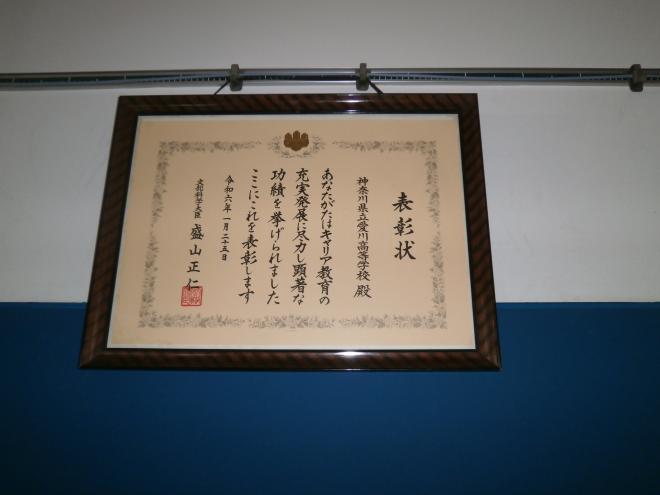 表彰状
神奈川県立愛川高等学校 殿
あなたがたはキャリア教育の
充実発展に尽力し顕著な
功績を挙げられました
ここにこれを表彰します
令和六年一月二十五日
文部科学大臣 盛山正仁